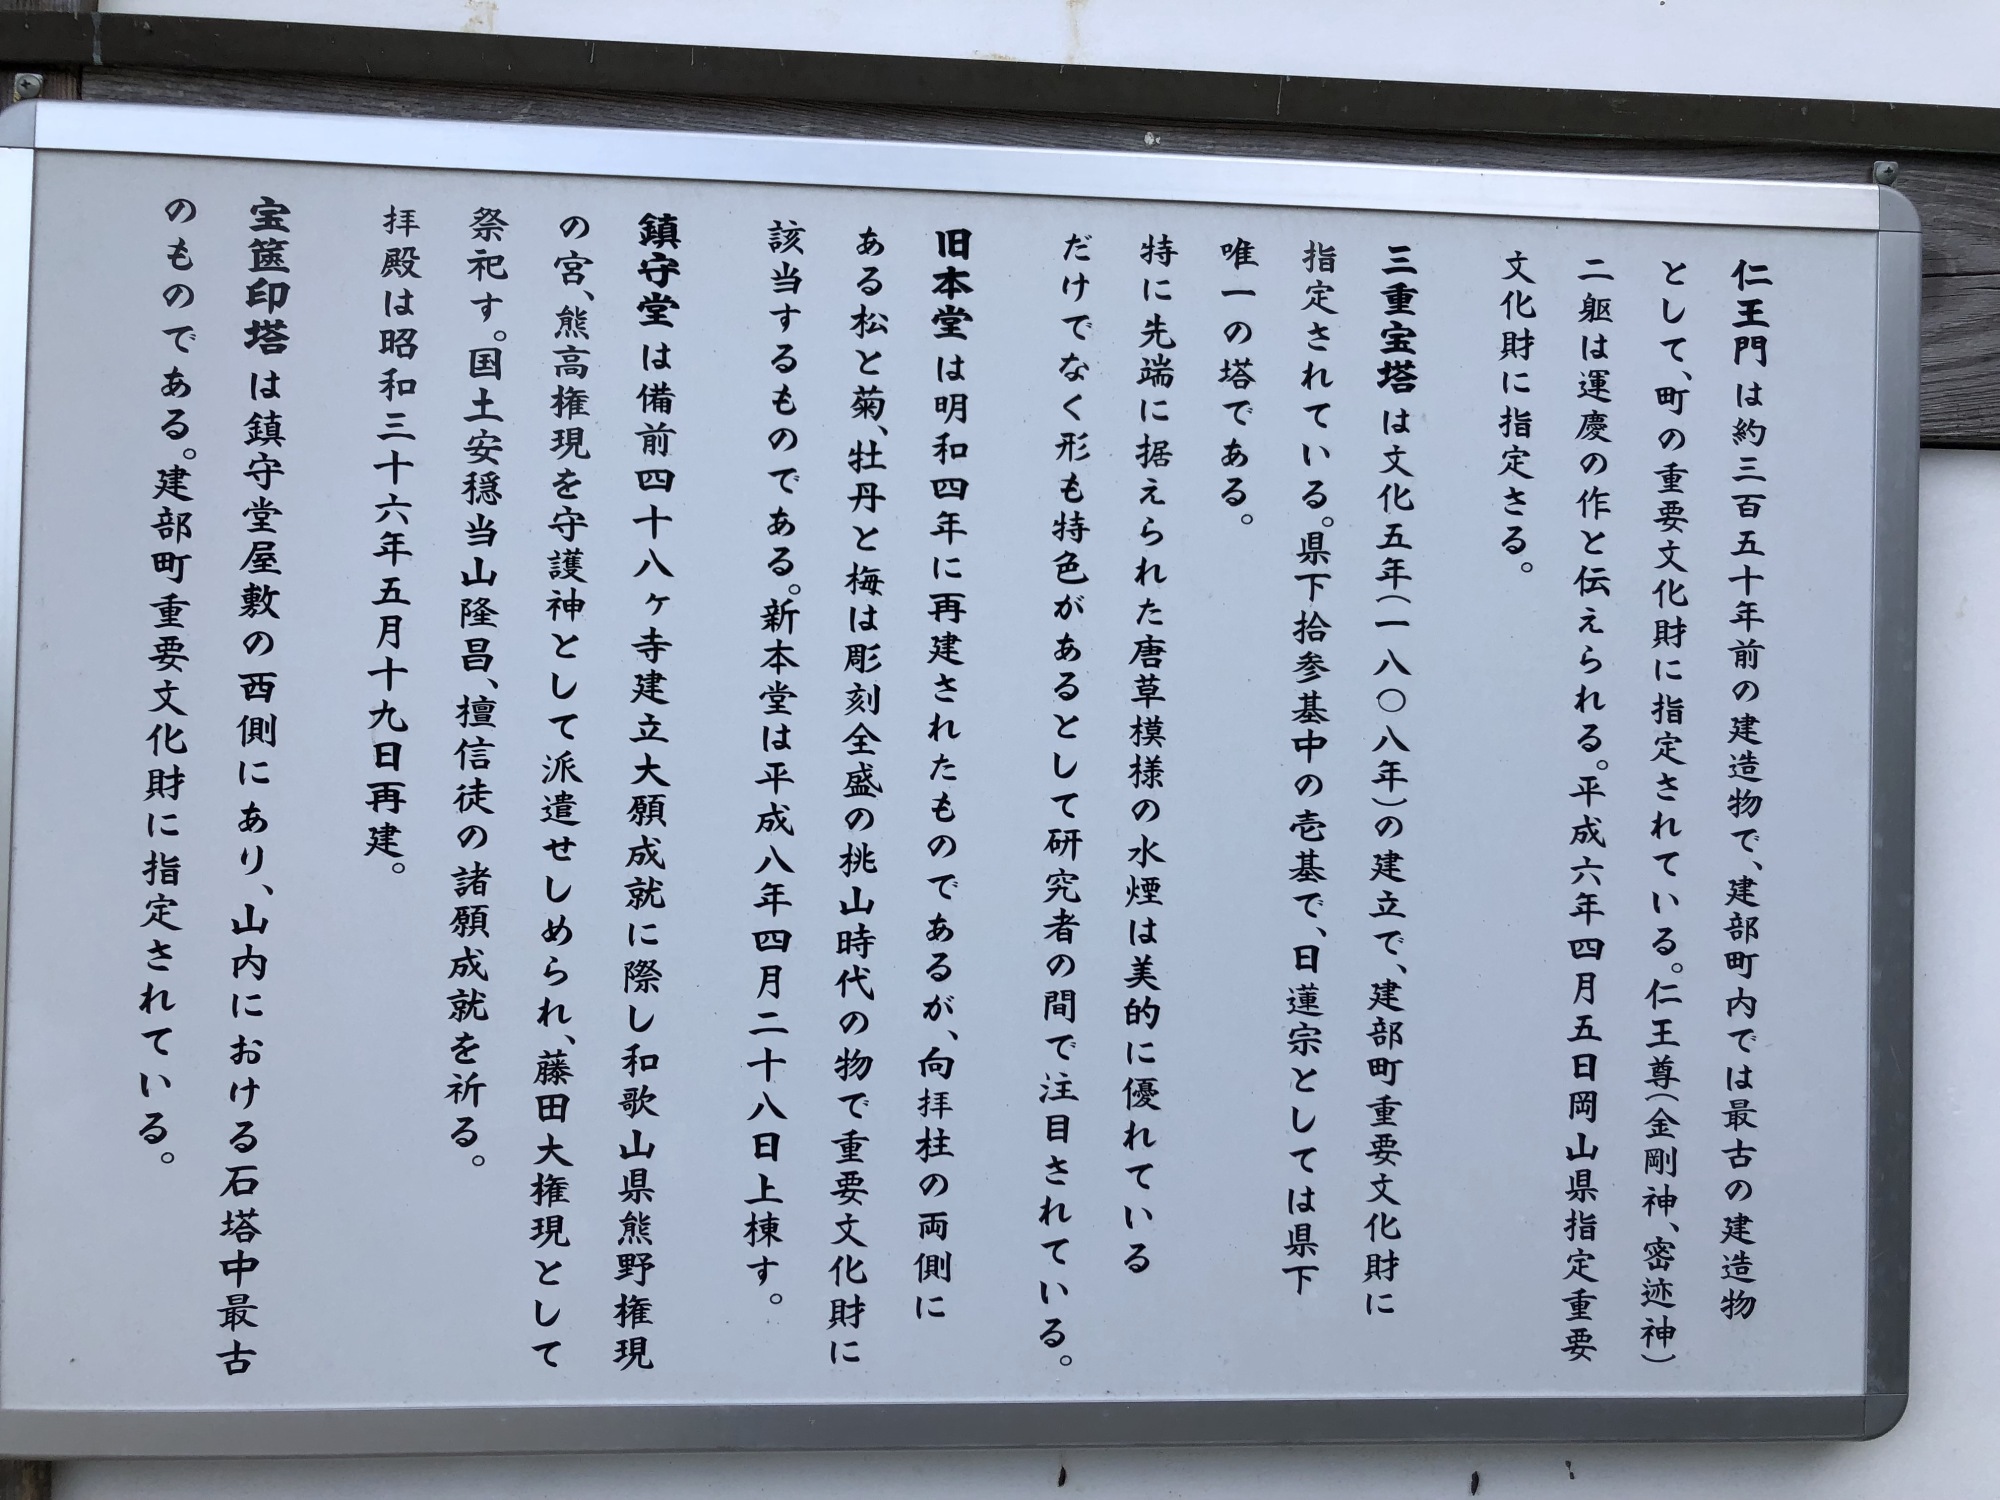 仁王門は約三百五十年前の建造物で、建部町内では最古の建造物
として、町の重要文化財に指定されている。仁王尊(金剛神、密迹神)
二躯は運慶の作と伝えられる。平成六年四月五日岡山県指定重要
文化財に指定さる。
三重宝塔は文化五年(一八〇八年)の建立で、建部町重要文化財に
指定されている。県下拾参基中の壱基で、日蓮宗としては県下
唯一の塔である。
特に先端に据えられた唐草模様の水煙は美的に優れている
だけでなく形も特色があるとして研究者の間で注目されている。
旧本堂は明和四年に再建されたものであるが、向拝柱の両側に
ある松と菊、牡丹と梅は彫刻全盛の桃山時代の物で重要文化財に
該当するものである。新本堂は平成八年四月二十八日上棟す。
鎮守堂は備前四十八ヶ寺建立大願成就に際し和歌山県熊野権現
の宮、熊高権現を守護神として派遣せしめられ、藤田大権現として
祭祀す。国土安穏当山隆昌、檀信徒の諸願成就を祈る。
拝殿は昭和三十六年五月十九日再建。
宝篋印塔は鎮守堂屋敷の西側にあり、山内における石塔中最古
のものである。建部町重要文化財に指定されている。